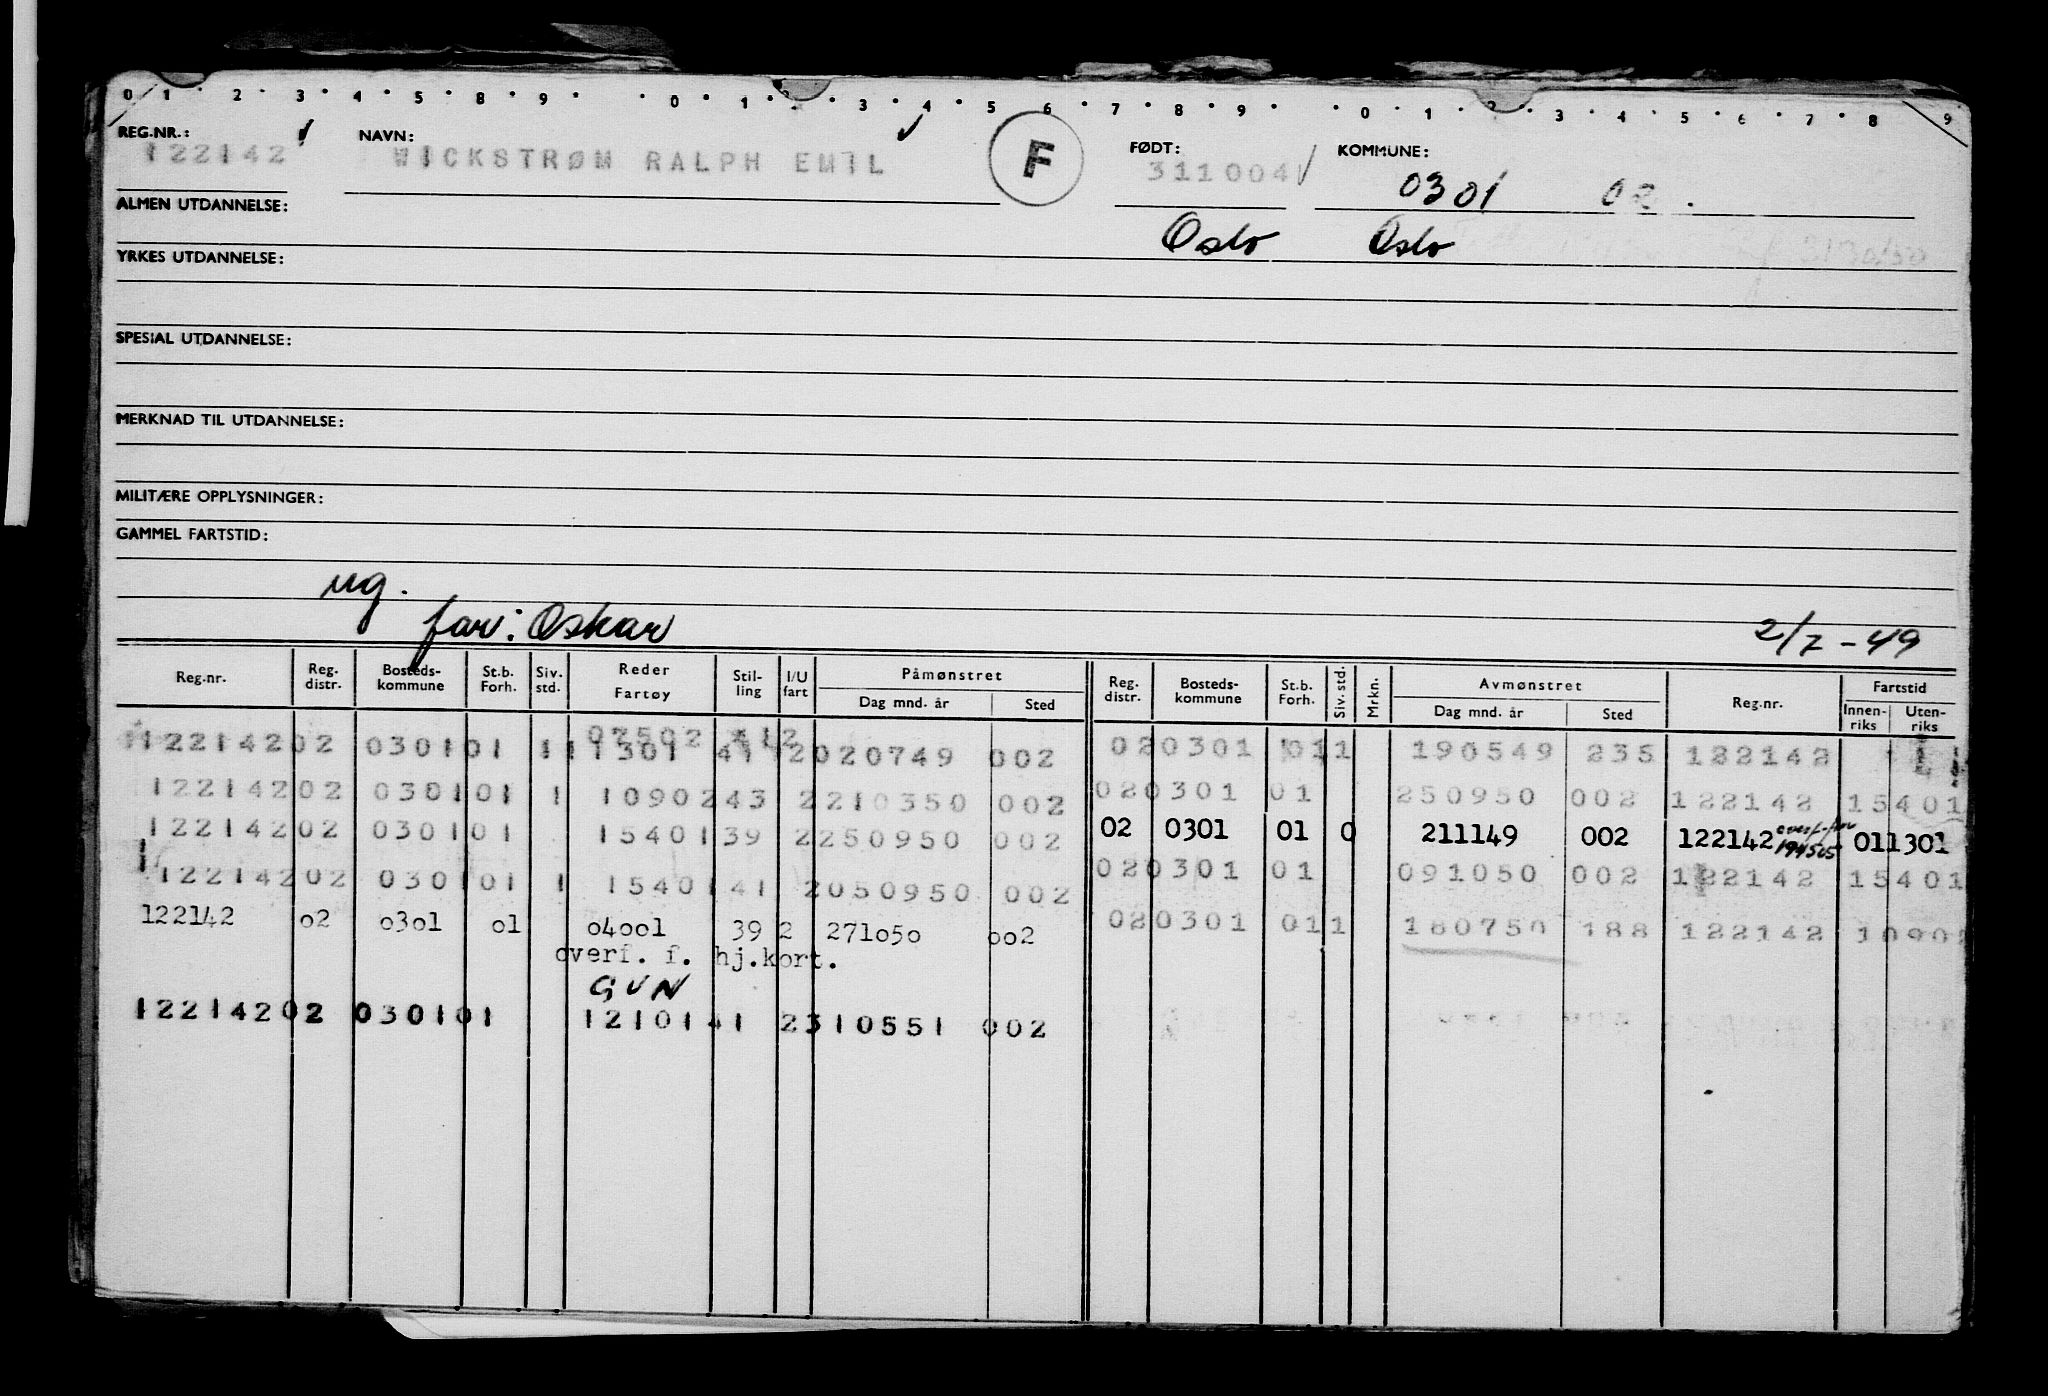 0 1 · 2 · 3 · 4 · 5 · 8 · 9 · · 0 · 1 · 2 · 3 · 4 · 5 · 6 · 7 · 8 · 9 · · 0 · 1 · 2 · 3 · 4 · 5 · 6 · 7 · 8 9
REG.NR.: NAVN: F FØDT: KOMMUNE:
122142 WICKSTRØM RALPH EMIL 311004 0301 02
ALMEN UTDANNELSE: Oslo Oslo
YRKES UTDANNELSE:
SPESIAL UTDANNELSE:
MERKNAD TIL UTDANNELSE:
MILITÆRE OPPLYSNINGER:
GAMMEL FARTSTID:
ug.
far: Oskar 2/7-49
Reg.nr. Reg. distr. Bosteds-kommune St.b. Forh. Siv. std. Reder Fartøy Stil-ling I/U fart Påmønstret Dag mnd. år Sted Reg. distr. Bosteds-kommune St.b. Forh. Siv. std. Mrkn. Avmønstret Dag mnd. år Sted Reg.nr. Fartstid Innen-riks Uten-riks
122142 02 0301 01 1 11301 41 2 020749 002 02 0301 01 1 190549 235 122142
122142 02 0301 01 1 10902 43 2 210350 002 02 0301 01 250950 002 122142 15401
122142 02 0301 01 15401 39 2 250950 002 02 0301 01 0 211149 002 122142 011301
122142 02 0301 01 1 15401 41 2 050950 002 02 0301 01 091050 002 122142 15401
122142 o2 o3o1 o1 o4oo1 39 2 271o5o oo2 02 0301 01 1 180750 188 122142 1090
overf. f. hj.kort.
GUN
122142 02 0301 01 12101 41 2 310551 002